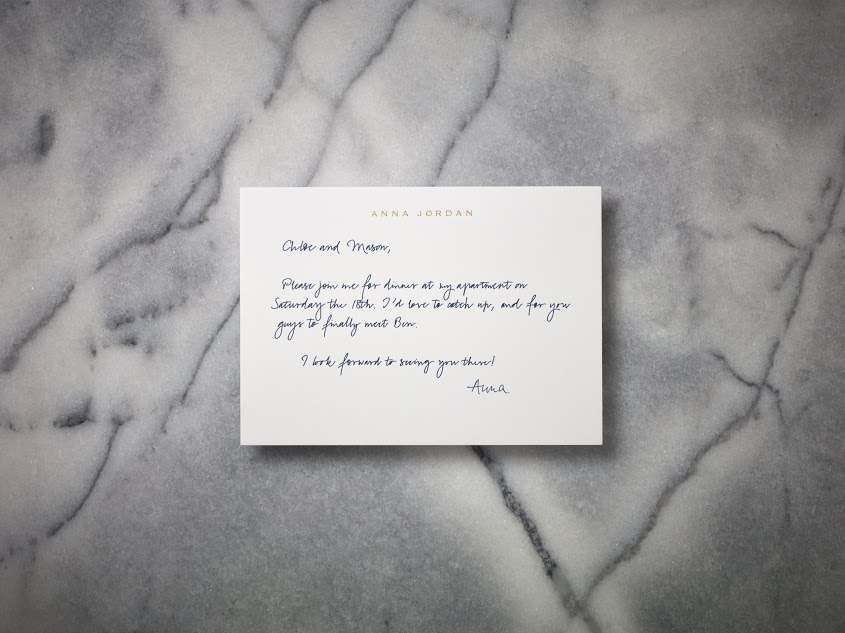 ANNA JORDAN
Chloe and Mason,
Please join me for dinner at my apartment on
Saturday the 18th. I'd love to catch up, and for you
guys to finally meet Ben.
I look forward to seeing you there!
Anna